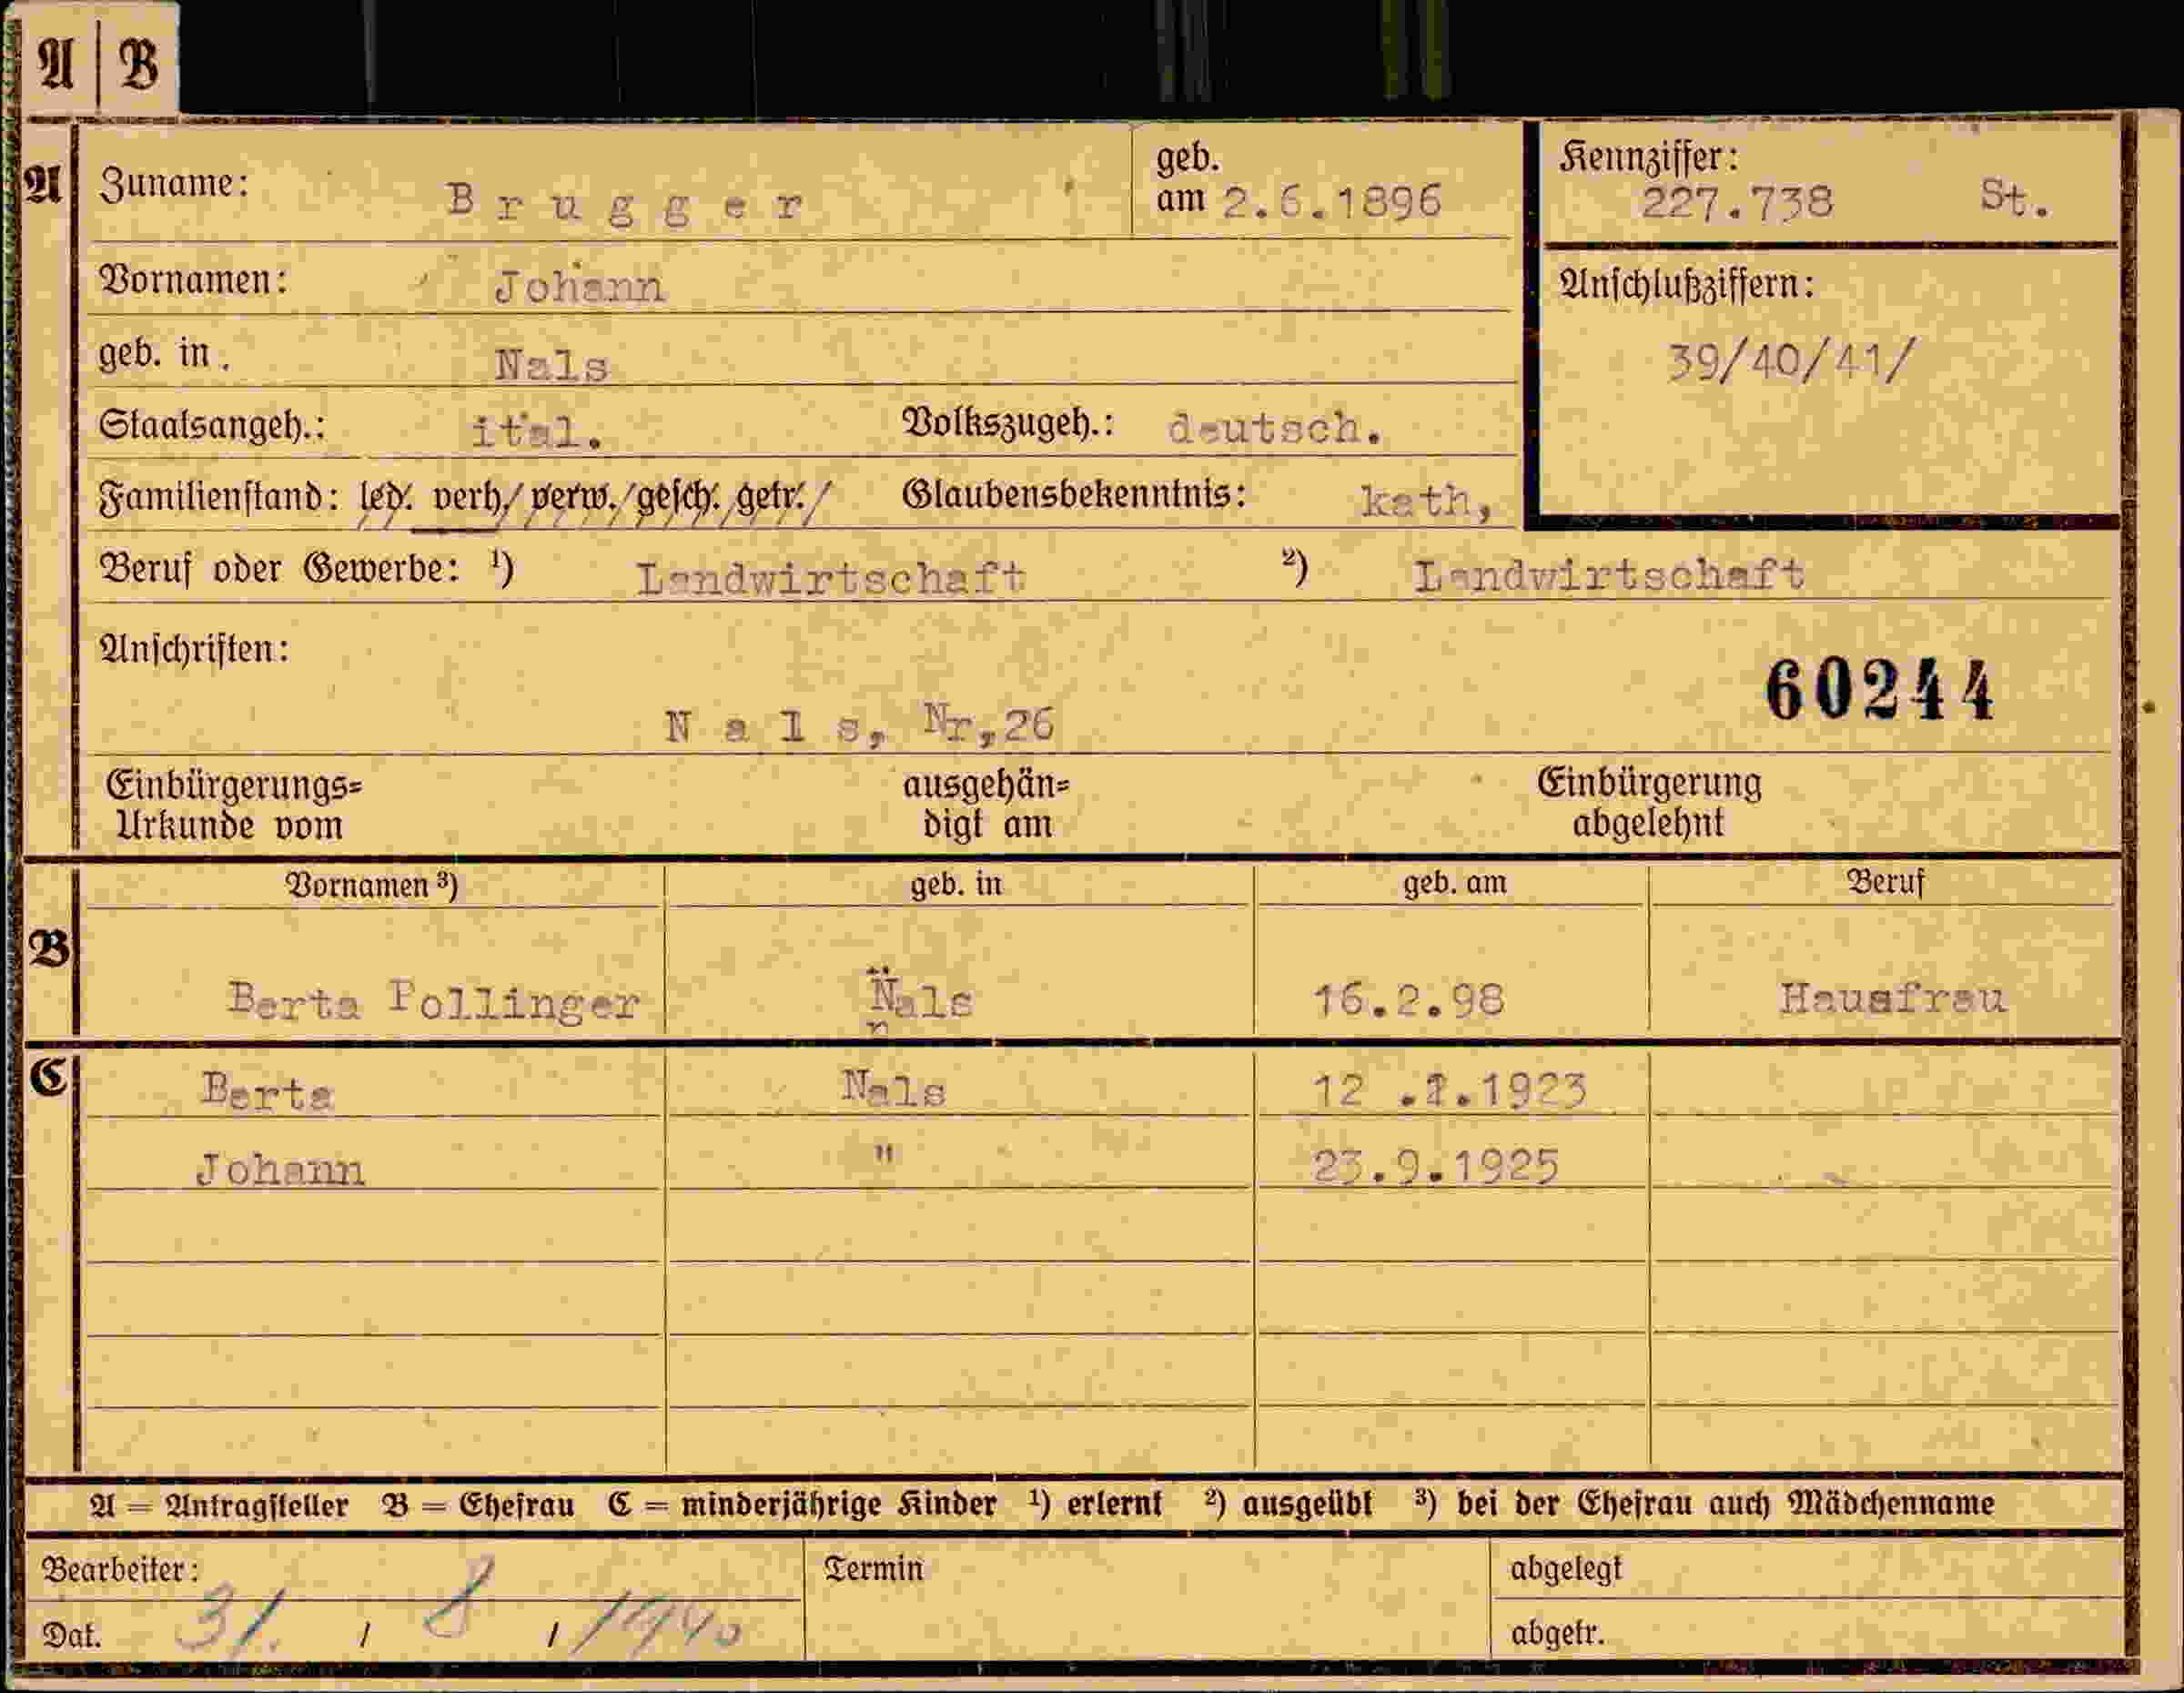 A | B
A Zuname: Brugger geb. am 2.6.1896 Kennziffer: 227.738 St.
Vornamen: Johann Anschlußziffern:
geb. in. Nals 39/40/41/
Staatsangeh.: ital. Volkszugeh.: deutsch.
Familienstand: led. verh/ verw./gesch. getr./ Glaubensbekenntnis: kath,
Beruf oder Gewerbe: ¹) Landwirtschaft ²) Landwirtschaft
Anschriften:
60244
Nals, Nr,26
Einbürgerungs= ausgehän= Einbürgerung
Urkunde vom digt am abgelehnt
Vornamen ³) geb. in geb. am Beruf
B
Berta Pollinger Nals 16.2.98 Hausfrau
C Berta Nals 12 . .1923
Johann " 23.9.1925
A = Antragsteller B = Ehefrau C = minderjährige Kinder ¹) erlernt ²) ausgeübt ³) bei der Ehefrau auch Mädchenname
Bearbeiter: Termin abgelegt
Dat. 31. / 8 / 1940 abgetr.